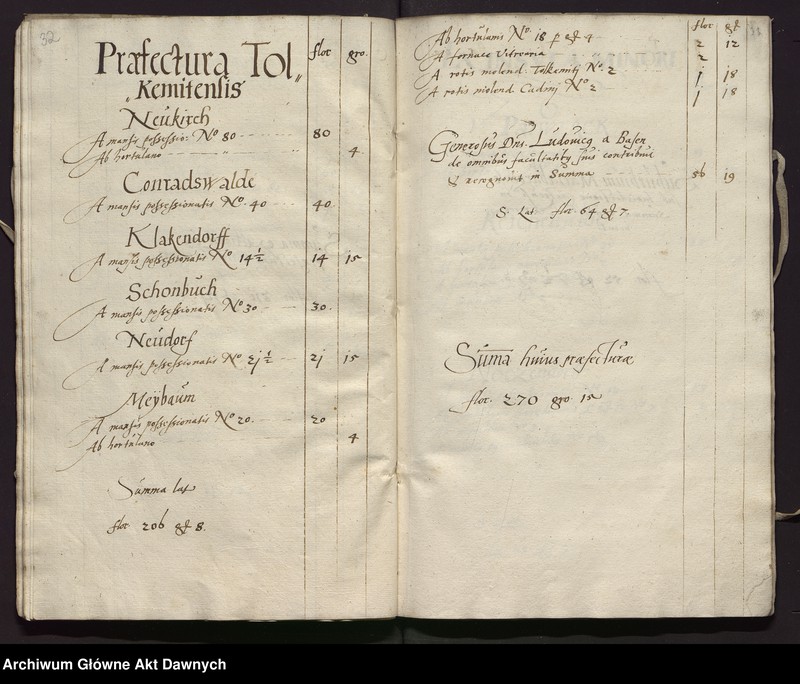 32
Præfectura Tol„
„Kemitensis
flor gro.
Neukirch
A mansis possessio: No 80 80
Ab hortulano „ „ 4
Conradswalde
A mansis possessionatis No. 40 40.
Klakendorff
A mansis possessionatis No 14½ 14 15
Schonbuch
A mansis possessionatis No 30 30.
Neudorf
A mansis possessionatis No 2j½ 2j 15
Meÿbaum
A mansis possessionatis No 20. 20
Ab hortulano 4
Summa lat
flor 206 gr 8.
flor gr
Ab hortulanis No. 18 p gr 4 2 12
A fornace Vitrearia 2
A rotis molend. Tolkemitj No. 2 j 18
A rotis molend Cadinj No 2 j 18
Generosus Dns. Ludovicg a Baisen
de omnibus facultatibg suis contribuit
& recognovit in Summa 56 19
S. Lat. flor. 64 gr 7.
Suma huius præfecturæ
flor. 270 gro 15
Archiwum Główne Akt Dawnych